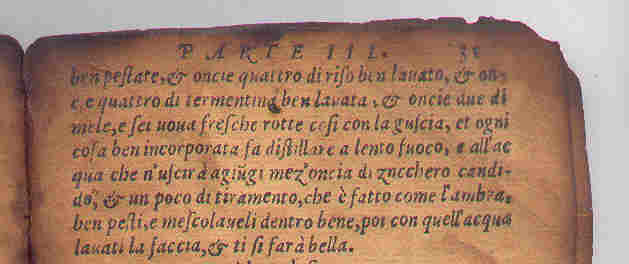 PARTE III. 35
ben pestate, & oncie quattro di riso ben lauato, & on-
c,e quattro di termentina ben lauata, & oncie due di
mele, e sei uoua fresche rotte cosi con la guscia, et ogni
cosa ben incorporata fa distillare a lento fuoco, e all'ac
qua che n'uscirà agiũgi mez'oncia di zucchero candi-
do, & un poco di tiramento, che è fatto come l'ambra,
ben pesti, e mescolaueli dentro bene, poi con quell'acqua
lauati la faccia, & ti si farà bella.